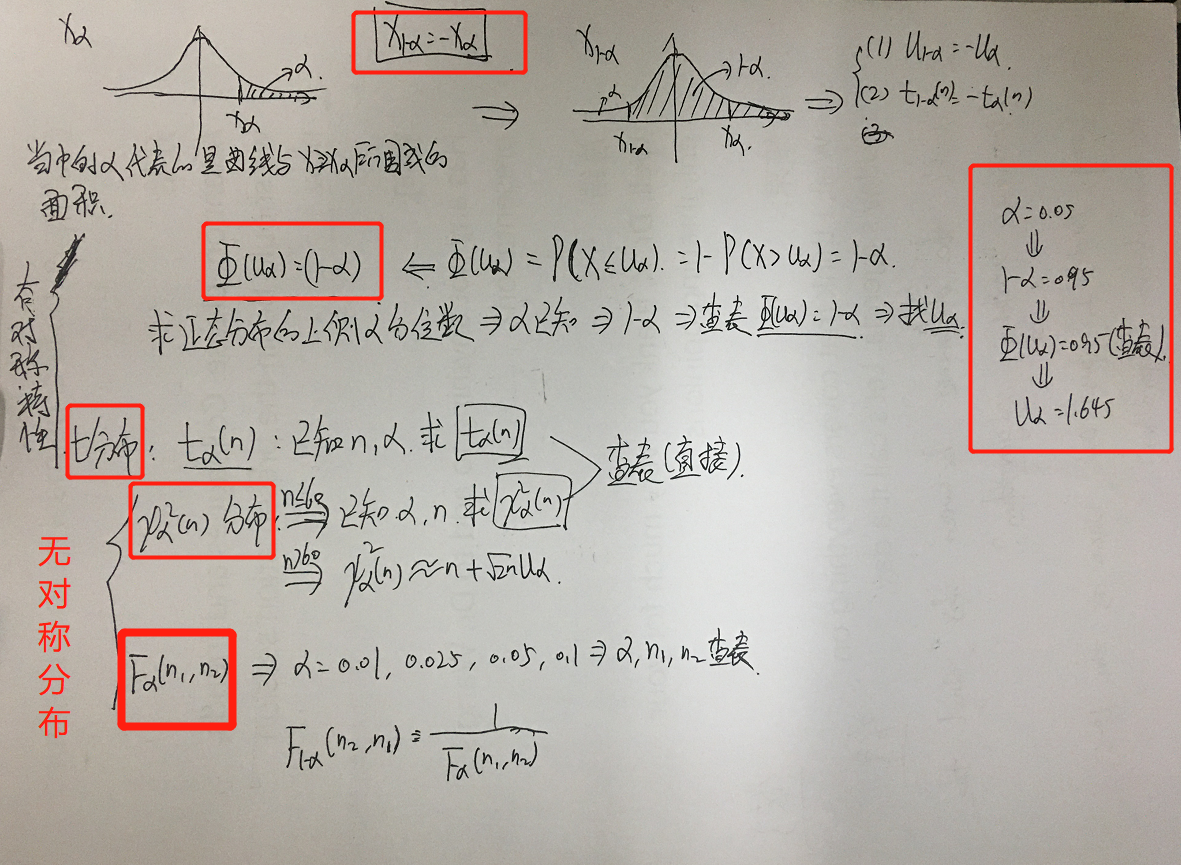 Xα
α.
Xα
X1-α=-Xα
⇒
X1-α
α
1-α.
X1-α
Xα.
⇒
(1) U1-α=-Uα.
(2) t1-α(n)=-tα(n)
当中的α代表的是曲线与X≥Xα所围成的
面积.
Φ(Uα)=(1-α) ⇐ Φ(Uα)=P(X≤Uα).=1-P(X>Uα)=1-α.
求正态分布的上侧α分位数⇒α已知⇒1-α⇒查表Φ(Uα)=1-α⇒找Uα.
α=0.05
⇓
1-α=0.95
⇓
Φ(Uα)=0.95(查表).
⇓
Uα=1.645
有对称特性
t分布: tα(n): 已知n,α.求 tα(n)
查表(直接).
χα²(n) 分布: n≤60 ⇒ 已知.α,n.求 χα²(n)
n>60 ⇒ χα²(n)≈n+√2nUα.
无对称分布
Fα(n1,n2) ⇒ α=0.01, 0.025, 0.05, 0.1⇒α,n1,n2查表.
F1-α(n2,n1)=1/Fα(n1,n2)